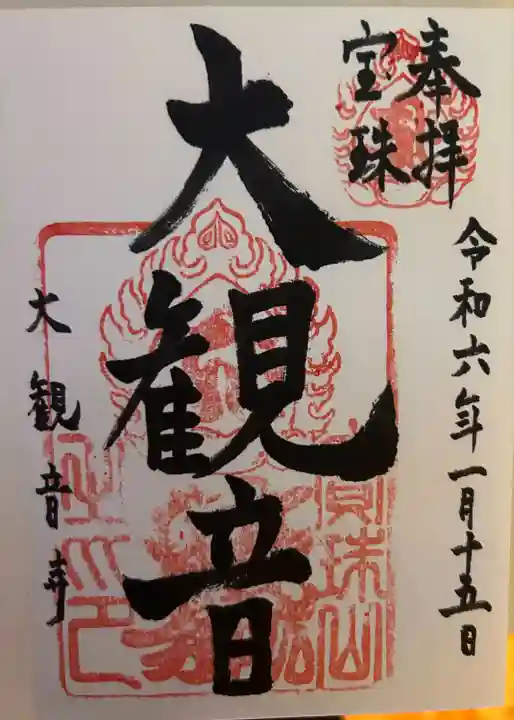 奉拝
宝珠
令和六年一月十五日
大観音
大観音寺
宝珠山